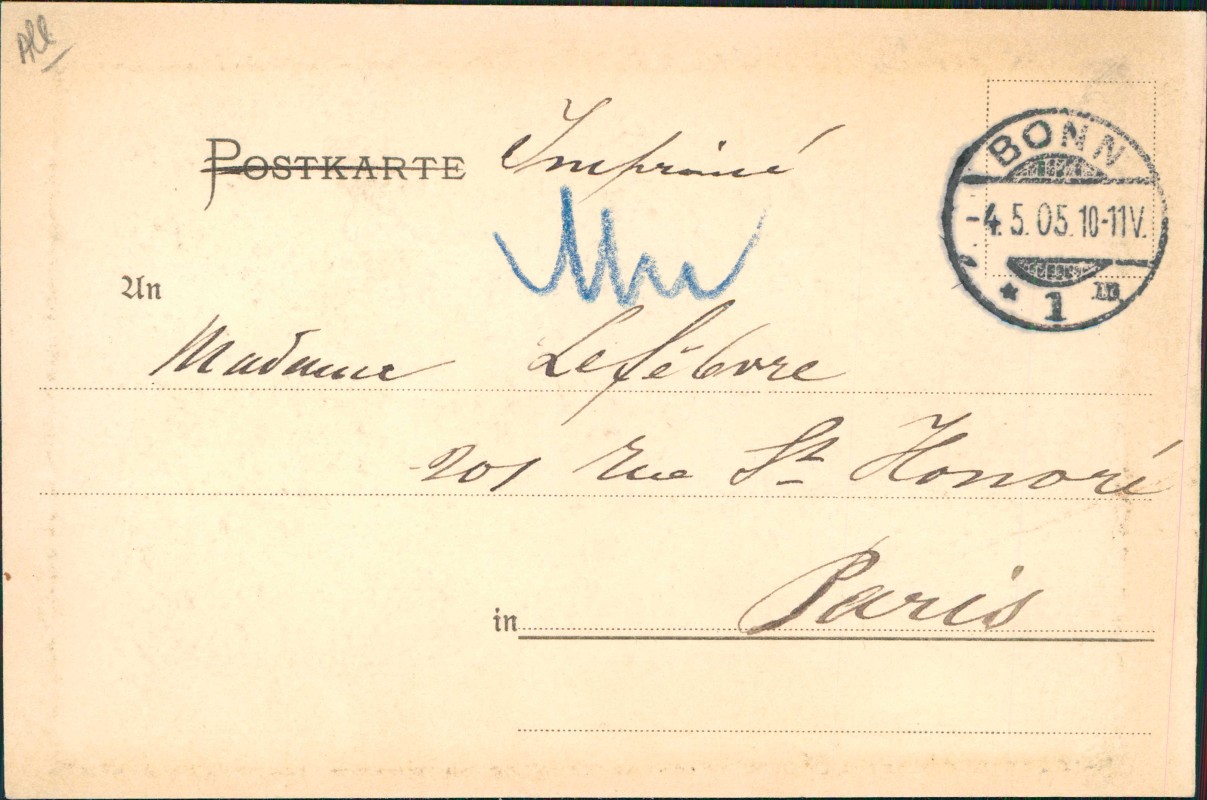 All
POSTKARTE Imprimé
BONN
-4.5.05.10-11V.
* 1 m
An
Madame Lefébvre
201 rue St Honoré
in Paris